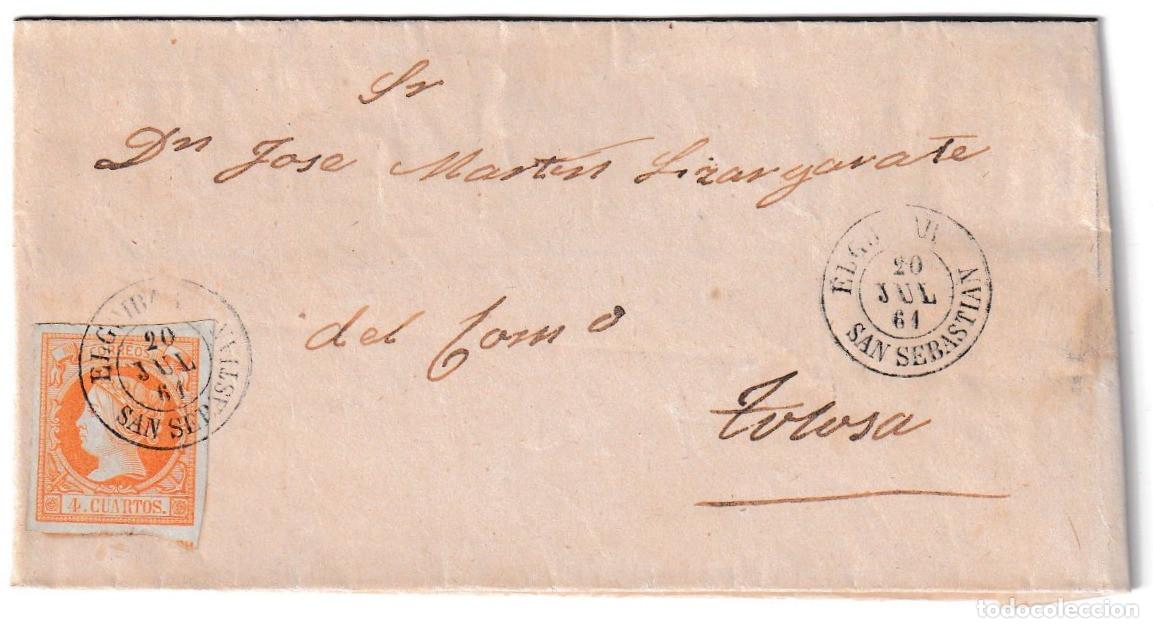 Sr
Dn Jose Martin Lizargarate
del Como
Tolosa
ELG
20
JUL
61
SAN SEBASTIAN
20
JUL
61
SAN SEBASTIAN
4. CUARTOS.
todocoleccion